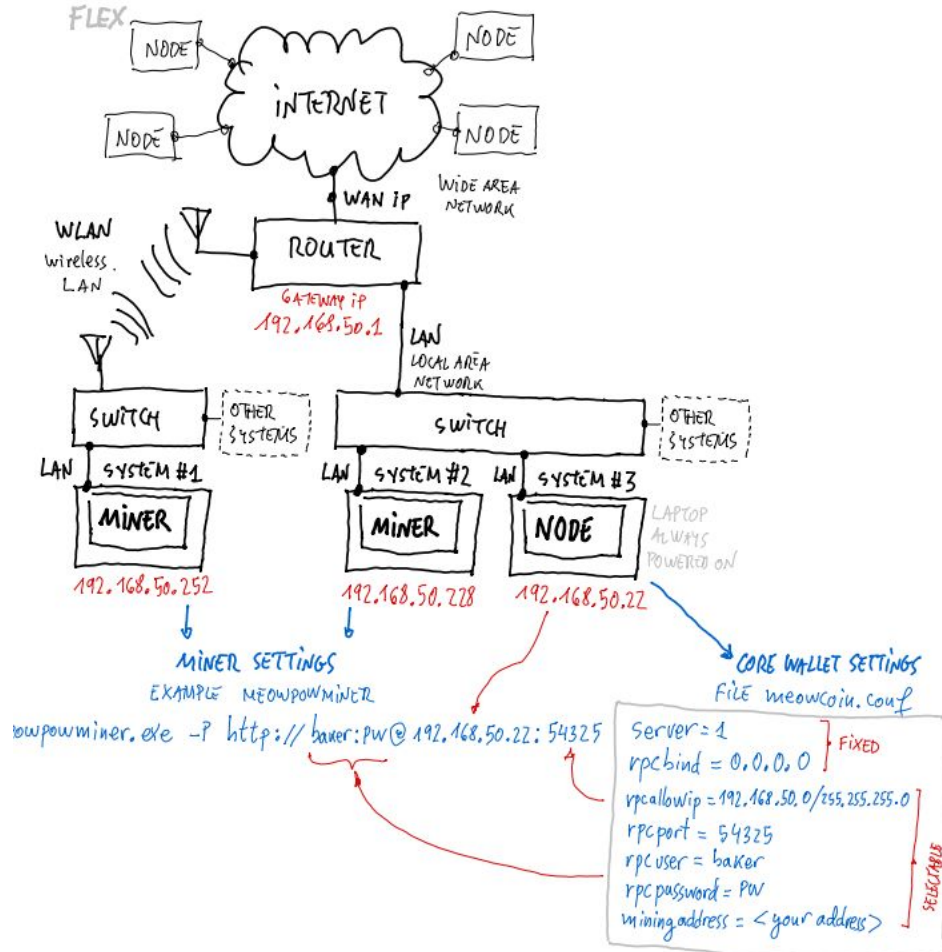 FLEX
NODE
NODE
INTERNET
NODE
NODE
WAN iP
WIDE AREA
NETWORK
WLAN
wireless.
LAN
ROUTER
GATEWAY iP
192.168.50.1
LAN
LOCAL AREA
NETWORK
SWITCH
OTHER
SYSTEMS
SWITCH
OTHER
SYSTEMS
LAN
SYSTEM #1
LAN
SYSTEM #2
LAN
SYSTEM #3
MINER
MINER
NODE
LAPTOP
ALWAYS
POWERED ON
192.168.50.252
192.168.50.228
192.168.50.22
MINER SETTINGS
EXAMPLE MEOWPOWMINER
owpowminer.exe -P http://baker:PW@192.168.50.22:54325
CORE WALLET SETTINGS
FILE meowcoin.conf
server=1
rpcbind = 0.0.0.0
FIXED
rpcallowip=192.168.50.0/255.255.255.0
rpcport = 54325
rpcuser = baker
rpcpassword = PW
miningaddress = <your address>
SELECTABLE